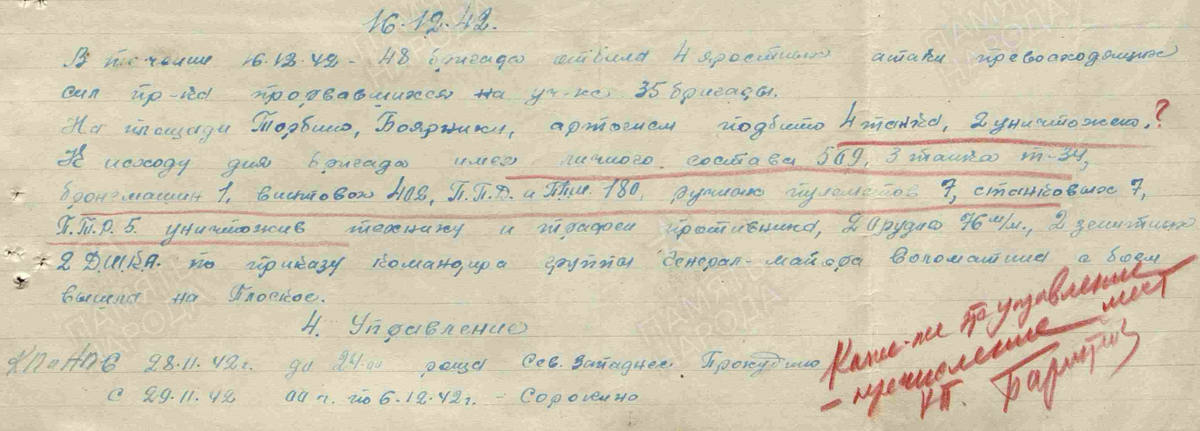 16.12.42.
В течение 16.12.42 - 48 бригада отбила 4 яростных атаки превосходящих
сил пр-ка прорвавшихся на уч-ке 35 бригады.
На площади Торбино, Боярники, артогнем подбито 4 танка, 2 уничтожено. ?
К исходу дня бригада имея личного состава 509, 3 танка Т-34,
бронемашин 1, винтовок 402, П.П.Д. и ППШ. 180, ручных пулеметов 7, станковых 7,
П.Т.Р. 5. уничтожив технику и трофеи противника, 2 орудия 76 м/м., 2 зенитных
2 Д.Ш.К.А. по приказу командира группы Генерал-майора с боем
вышла на Плоское.
4. Управление
КП и НПС 28.11.42 г. до 24-00 роща Сев. Западнее Прокудино
С 29.11.42 г. по 6.12.42 г. - Сорокино
Какое-же управление
- перечисление мест
КП.